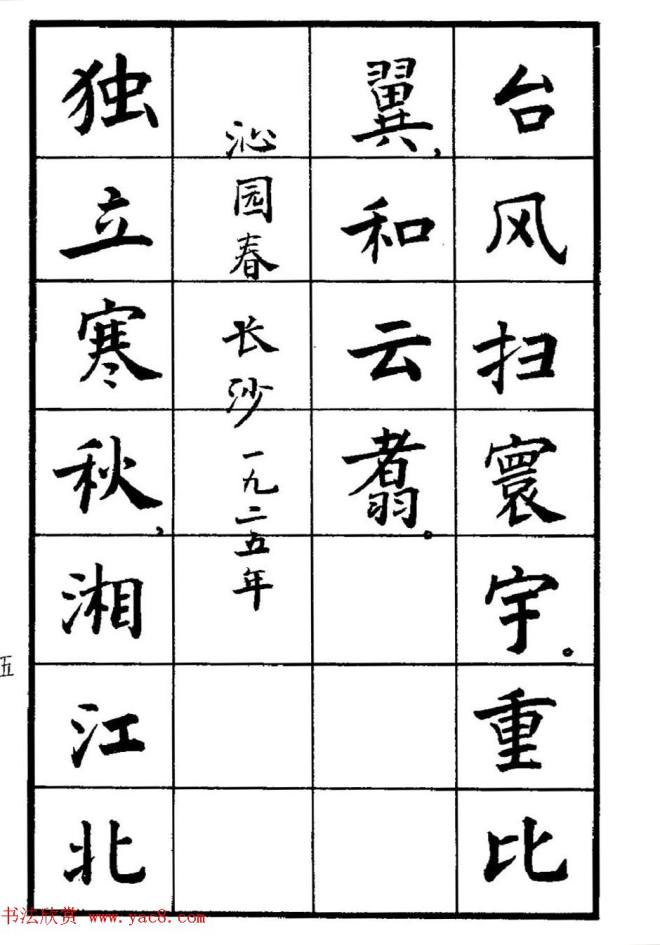 台风扫寰宇。重比
翼,和云翥。
沁园春 长沙 一九二五年
独立寒秋,湘江北
五
书法欣赏 www.yac8.com